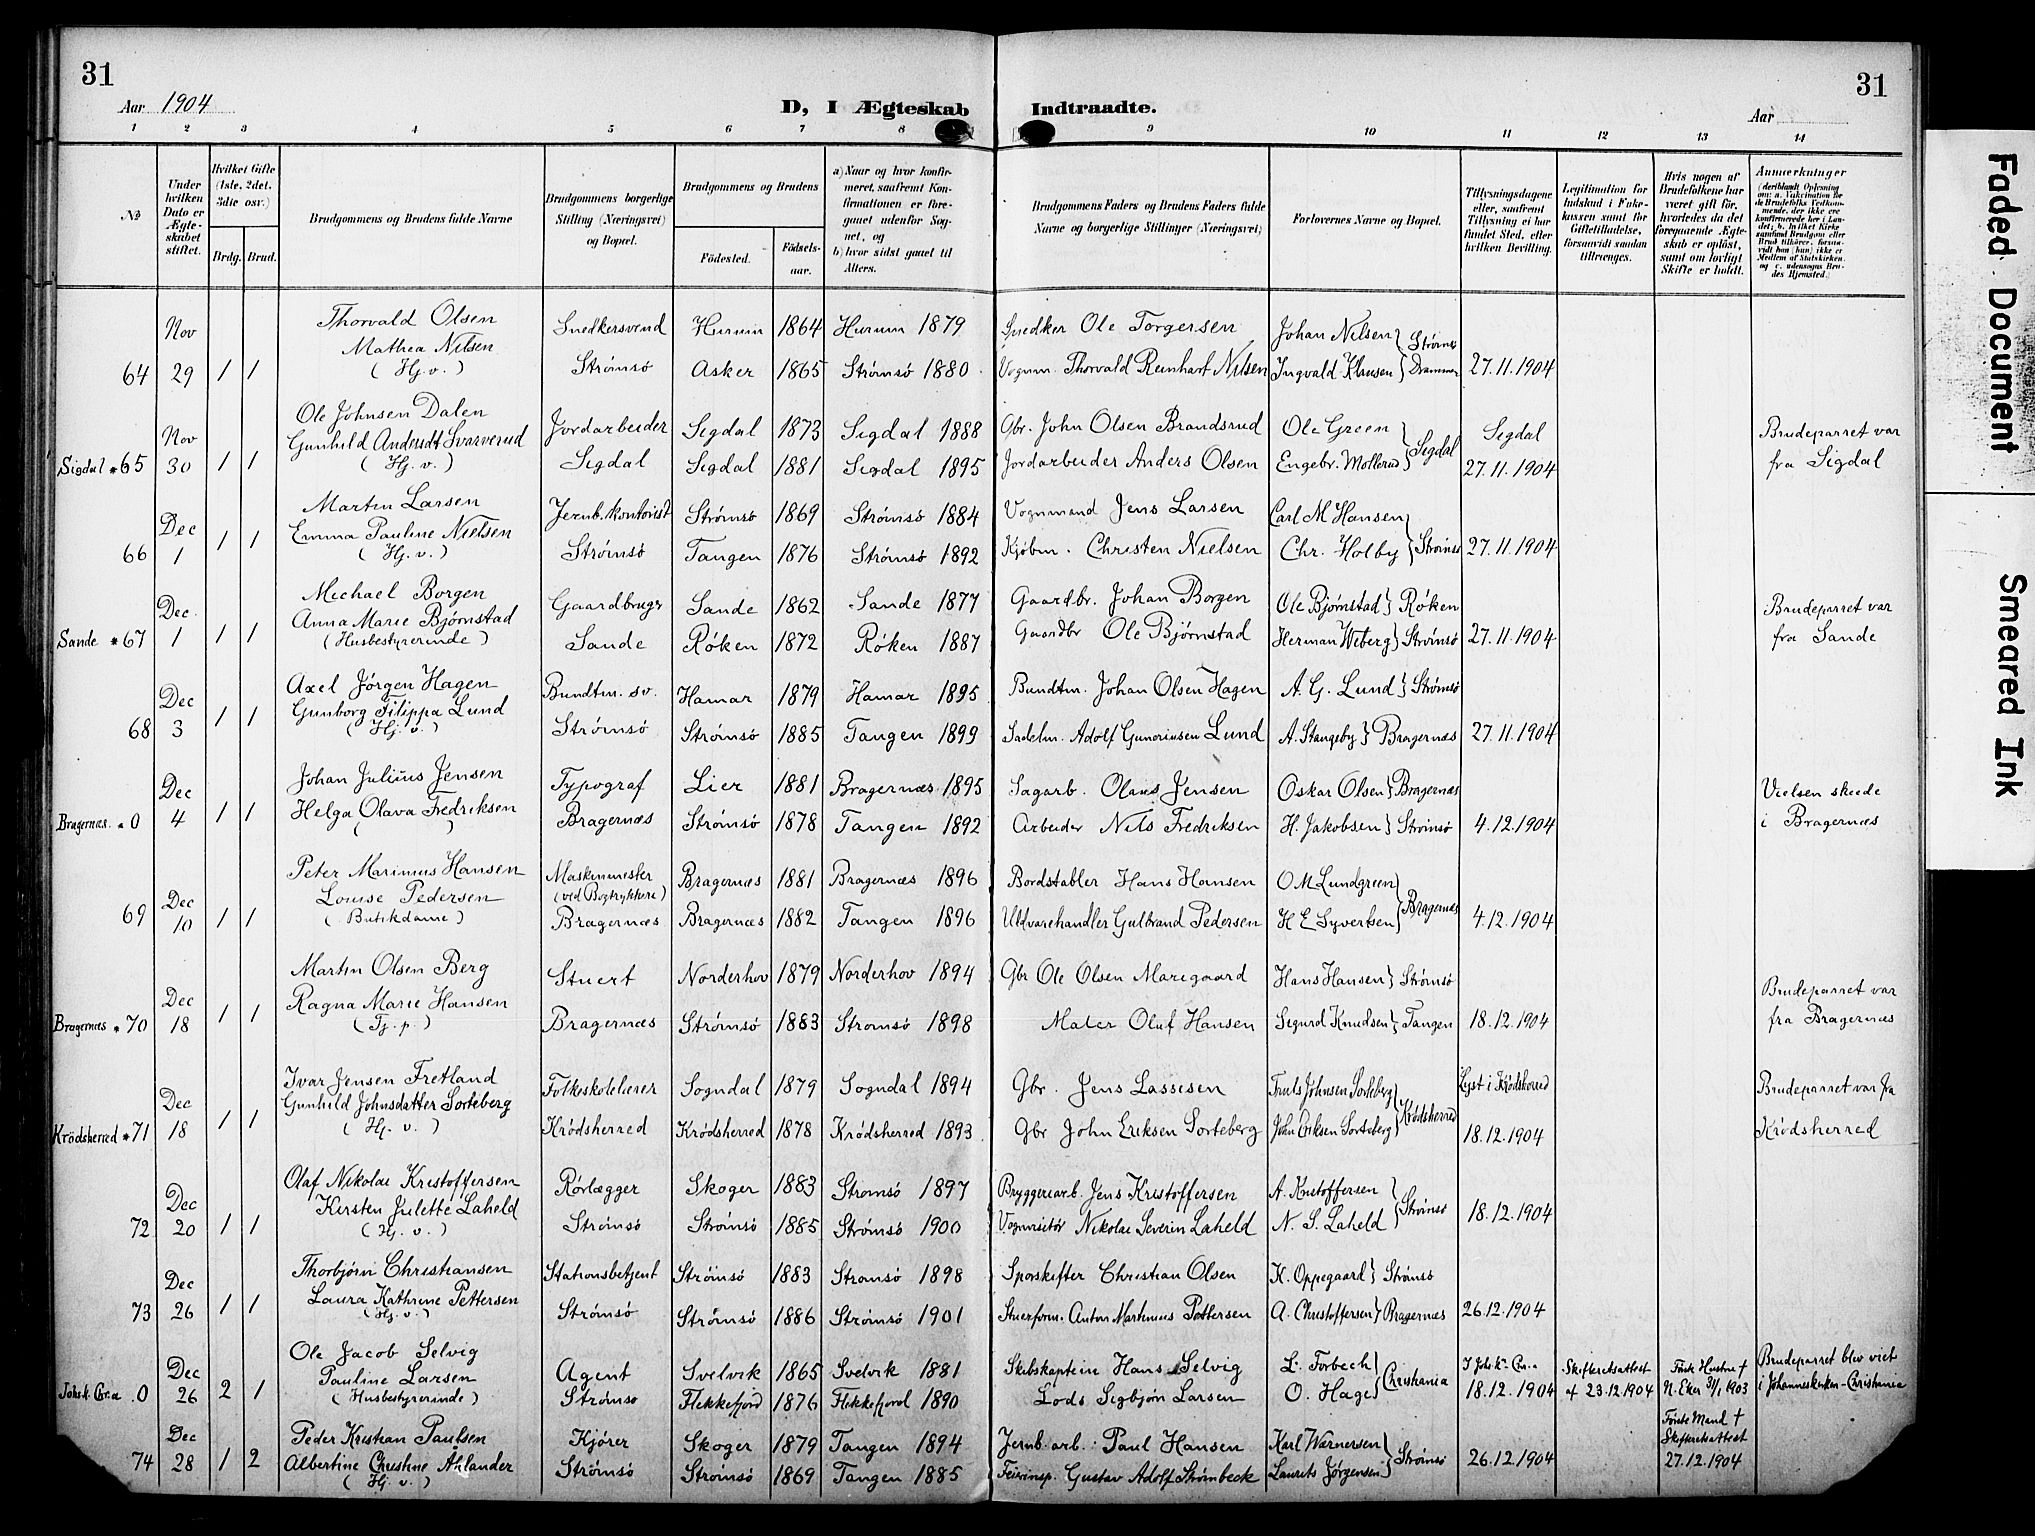 31
31
Aar 1904
D, I Ægteskab Indtraadte.
Aar
1 2 3 4 5 6 7 8 9 10 11 12 13 14
No
Under hvilken Dato er Ægteskabet stiftet.
Hvilket Gifte (1ste, 2det, 3die osv.)
Brdg. Brud.
Brudgommens og Brudens fulde Navne
Brudgommens borgerlige Stilling (Næringsvei) og Bopæl.
Brudgommens og Brudens
Fødested.
Fødselsaar.
a) Naar og hvor konfirmeret, saafremt Konfirmationen er foregaaet udenfor Sognet, og
b) hvor sidst gaaet til Alters.
Brudgommens Faders og Brudens Faders fulde Navne og borgerlige Stillinger (Næringsvei)
Forlovernes Navne og Bopæl.
Tillysningsdagene eller, saafremt Tillysning ei har fundet Sted, efter hvilken Bevilling.
Legitimation for Indskud i Enkekassen samt for Giftetilladelse, forsaavidt saadan tiltrænges.
Hvis nogen af Brudefolkene har været gift før, hvorledes da det foregaaende Ægteskab er opløst, samt om lovligt Skifte er holdt.
Anmerkninger
Nov Thorvald Olsen Snedkersvend Hurum 1864 Hurum 1879 Snedker Ole Torgersen Johan Nilsen } Strømsø
Mathea Nilsen
64 29 1 1 (Hj. v.) Strømsø Asker 1865 Strømsø 1880 Vognm. Thorvald Reinhart Nilsen Ingvald Klausen } Drammen 27.11.1904
Nov Ole Johnsen Dalen Jordarbeider Sigdal 1873 Sigdal 1888 Gbr. John Olsen Brandsrud Ole Green } Sigdal Sigdal Brudeparret var
Gunhild Andersdt Svarverud
Sigdal * 65 30 1 1 (Hj. v.) Sigdal Sigdal 1881 Sigdal 1895 Jordarbeider Anders Olsen Engebr. Mollerud 27.11.1904 fra Sigdal
Dec Martin Larsen Jernb. kontorist Strømsø 1869 Strømsø 1884 Vognmand Jens Larsen Carl M Hansen
Emma Pauline Nielsen
66 1 1 1 (Hj. v.) Strømsø Tangen 1876 Strømsø 1892 Kjøbm. Christen Nielsen Chr. Holby } Strømsø 27.11.1904
Dec. Michael Borgen Gaardbruger Sande 1862 Sande 1877 Gaardbr. Johan Borgen Ole Bjørnstad } Røken Brudeparret var
Anna Marie Bjørnstad
Sande * 67 1 1 1 (Husbestyrerinde) Sande Røken 1872 Røken 1887 Gaardbr Ole Bjørnstad Herman Weberg } Strømsø 27.11.1904 fra Sande
Dec Axel Jørgen Hagen Bundtm. sv. Hamar 1879 Hamar 1895 Bundtm. Johan Olsen Hagen A. G. Lund } Strømsø
Gunborg Filippa Lund
68 3 1 1 (Hj. v.) Strømsø Strømsø 1885 Tangen 1899 Sadelm. Adolf Gunoriusen Lund A. Stangeby } Bragernæs 27.11.1904
Dec Johan Julius Jensen Typograf Lier 1881 Bragernæs 1895 Sagarb. Olaus Jensen Oskar Olsen } Bragernæs Vielsen skede
Bragernæs. * 0 4 1 1 Helga Olava Fredriksen Bragernæs Strømsø 1878 Tangen 1892 Arbeider Nils Fredriksen H. Jakobsen } Strømsø 4.12.1904 i Bragernæs
( )
Dec Peter Marinius Hansen Maskinmester (ved Bogtrykkeri) Bragernæs 1881 Bragernæs 1896 Bordstabler Hans Hansen O M Lundgreen } Bragernæs
Louise Pedersen
69 10 1 1 (Butikdame) Bragernæs Bragernæs 1882 Tangen 1896 Uldvarehandler Gulbrand Pedersen H E Syvertsen 4.12.1904
Martin Olsen Berg Stuert Norderhov 1879 Norderhov 1894 Gbr Ole Olsen Maregaard Hans Hansen } Strømsø Brudeparret var
Dec Ragna Marie Hansen
Bragernæs * 70 18 1 1 (Tj. p.) Bragernæs Strømsø 1883 Strømsø 1898 Maler Oluf Hansen Sigurd Knudsen } Tangen 18.12.1904 fra Bragernæs
Ivar Jensen Fretland Folkeskolelærer Sogndal 1879 Sogndal 1894 Gbr. Jens Lassesen Truls Johnsen Sorteberg } Krødsherred Lyst i Krødsherred Brudeparret var fra
Dec Gunhild Johnsdatter Sorteberg
Krødsherred * 71 18 1 1 (Hj. v.) Krødsherred Krødsherred 1878 Krødsherred 1893 Gbr John Eriksen Sorteberg John Eriksen Sorteberg 18.12.1904 Krødsherred
Olaf Nikolai Kristoffersen Rørlægger Skoger 1883 Strømsø 1897 Bryggeriarb. Jens Kristoffersen A. Kristoffersen } Strømsø
Dec Kirsten Julette Laheld
72 20 1 1 (Hj. v.) Strømsø Strømsø 1885 Strømsø 1900 Vognvisitør Nikolai Severin Laheld N. S. Laheld 18.12.1904
Dec Thorbjørn Christiansen Stationsbetjent Strømsø 1883 Strømsø 1898 Sporskifter Christian Olsen K. Oppegaard } Strømsø
Laura Kathrine Pettersen
73 26 1 1 (Hj. v.) Strømsø Strømsø 1886 Strømsø 1901 Stuerform. Anton Martinius Pettersen A. Christoffersen } Bragernæs 26.12.1904
Ole Jacob Selvig Agent Svelvik 1865 Svelvik 1881 Skibskaptein Hans Selvig L. Forbech } Christiania I Johs.k. Chr.a Skifteretsattest Første Hustru † Brudeparret blev viet
Dec Pauline Larsen
Johs.k. Chr.a . 0 26 2 1 (Husbestyrerinde) Strømsø Flekkefjord 1876 Flekkefjord 1890 Lods Sigbjørn Larsen O. Hage 18.12.1904 af 23.12.1904 N. Eker 31/1 1903 i Johanneskirken - Christiania
Dec Peder Kristian Paulsen Kjører Skoger 1879 Tangen 1894 Jernb. arb. Paul Hansen Karl Warnersen } Strømsø Første Mand † Skifteretsattest
74 28 1 2 Albertine Christine Åhlander Strømsø Strømsø 1869 Tangen 1885 Feierinsp. Gustav Adolf Strømbeck Laurits Jørgensen 26.12.1904 27.12.1904
(Hj. v.)
Faded Document
Smeared Ink